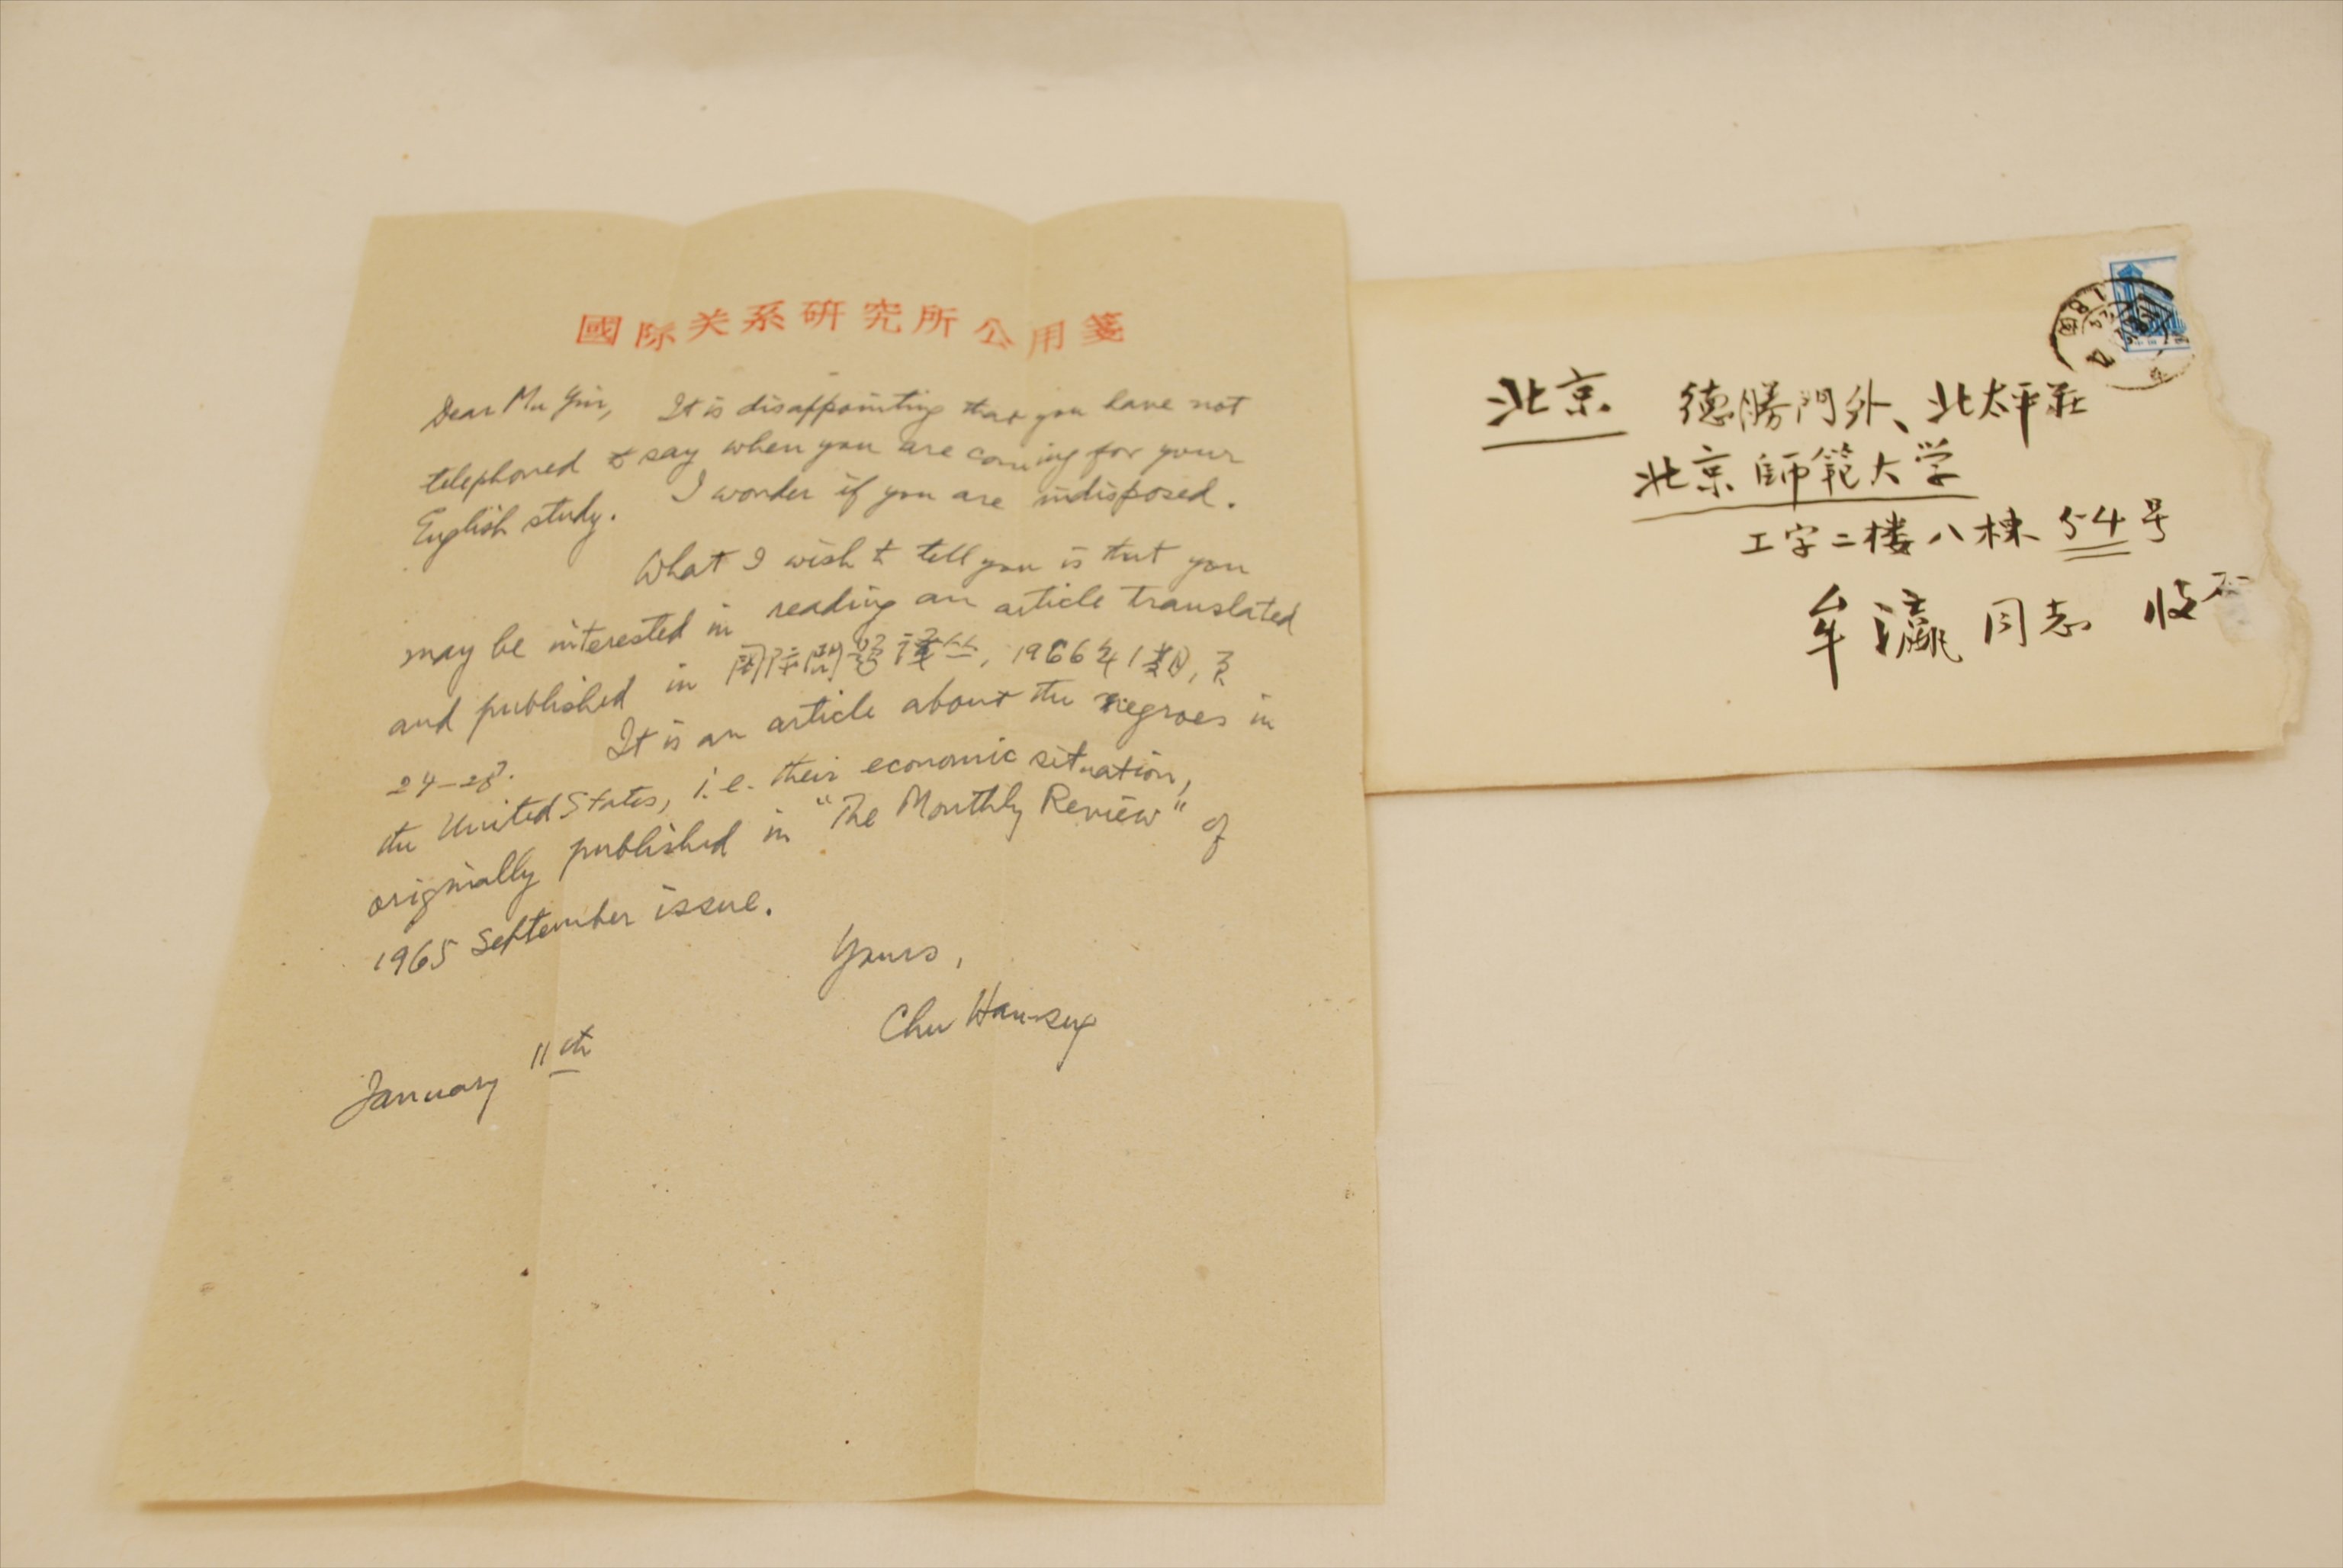 國际关系研究所公用箋
Dear Mu Yin, It is disappointing that you have not
telephoned to say when you are coming for your
English study. I wonder if you are indisposed.
What I wish to tell you is that you
may be interested in reading an article translated
and published in 國际问题译丛, 1966年1期, 页
24-28. It is an article about the negroes in
the United States, i.e. their economic situation,
originally published in "The Monthly Review" of
1965 September issue.
Yours,
Chu
January 11th
北京 德勝門外、北太平莊
北京師範大学
工字二楼八棟54号
牟瀛同志 收